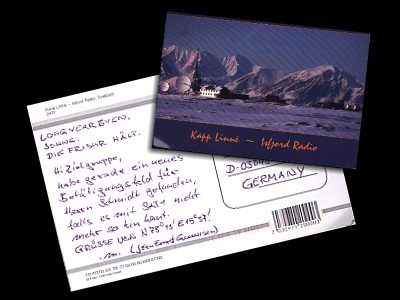 Kapp Linne ~ Isfjord Radio
Kapp Linne - Isfjord Radio, Svalbard
LONGYEARBYEN,
SONNE.
DIE FRISUR HÄLT.
Hi Zielgruppe,
habe gerade ein neues
Betätigungsfeld für
Herrn Schmidt gefunden,
falls es mit SuSE nicht
mehr so hin haut.
GRÜSSE VON N78°13' E15°37!
D-
GERMANY